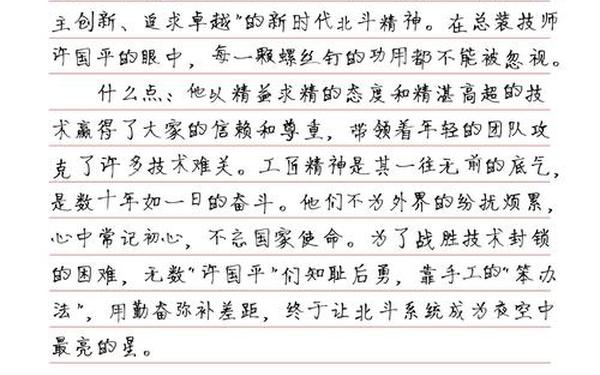 主创新、追求卓越”的新时代北斗精神。在总装技师
许国平的眼中，每一颗螺丝钉的功用都不能被忽视。
什么点：他以精益求精的态度和精湛高超的技
术赢得了大家的信赖和尊重，带领着年轻的团队攻
克了许多技术难关。工匠精神是其一往无前的底气，
是数十年如一日的奋斗。他们不为外界的纷扰烦累，
心中常记初心，不忘国家使命。为了战胜技术封锁
的困难，无数“许国平”们知耻后勇，靠手工的“笨办
法”，用勤奋弥补差距，终于让北斗系统成为夜空中
最亮的星。